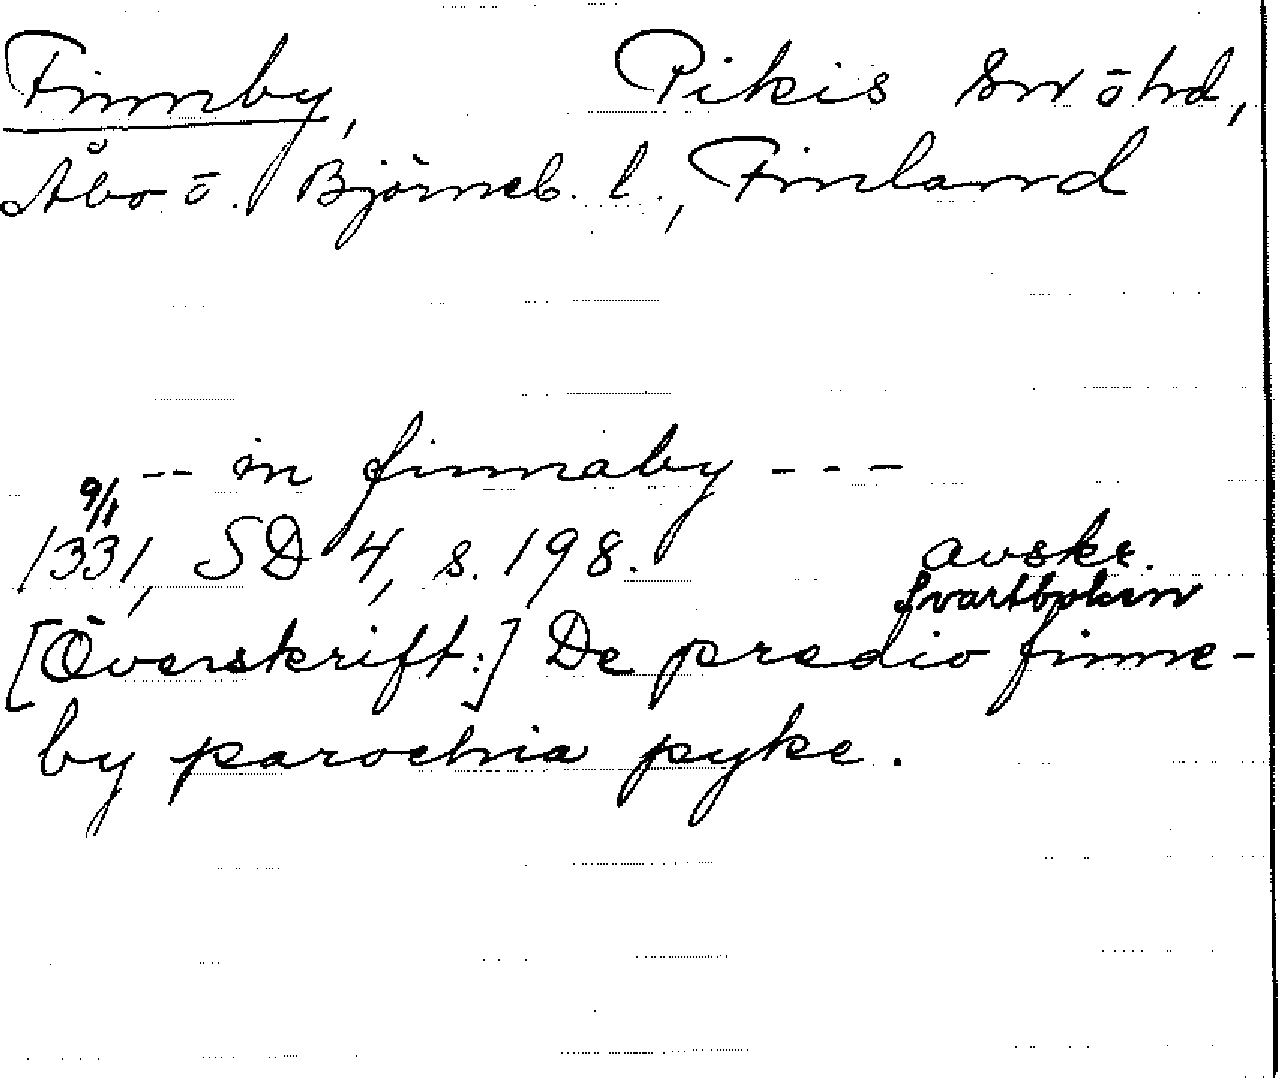 Finnby, Pikis sn o hd,
Åbo o. Björneb. l., Finland
-- in finnaby ---
9/1
1331, SD 4, s. 198. avskr.
Svartboken
[Överskrift:] De predio finne-
by parochia pyke.